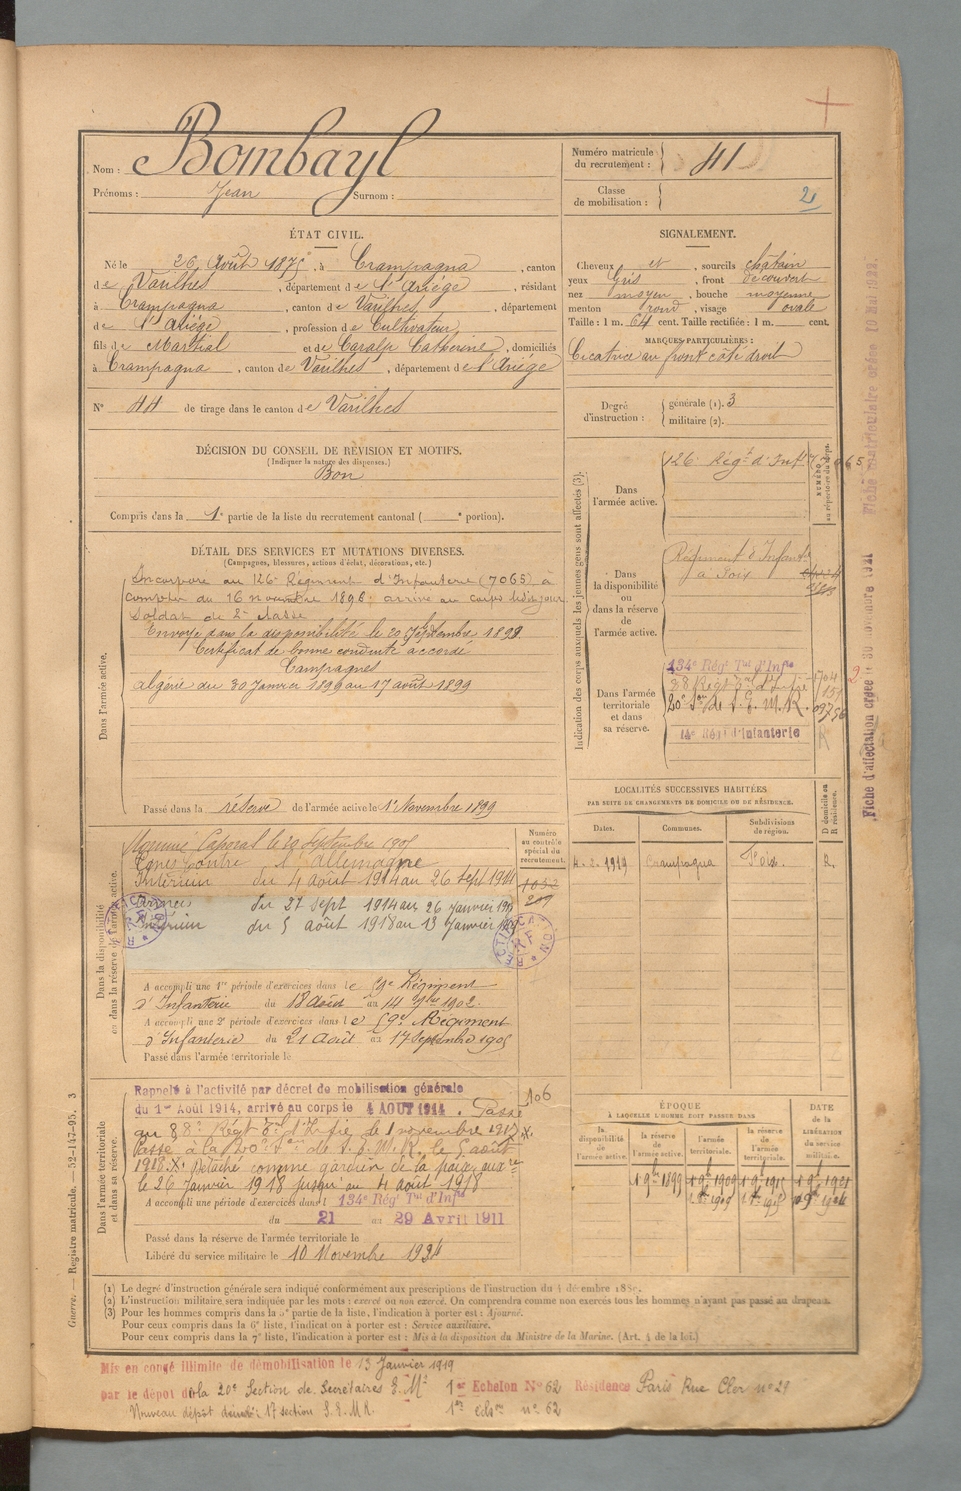 Nom : Bombayl
Prénoms : Jean Surnom :
Numéro matricule du recrutement : 41
Classe de mobilisation : 2
ÉTAT CIVIL.
Né le 26 Août 1875, à Crampagna, canton
de Varilhes, département de l'Ariège, résidant
à Crampagna, canton de Varilhes, département
de l'Ariège, profession de Cultivateur,
fils de Martial et de Caralp Catherine, domiciliés
à Crampagna, canton de Varilhes, département de l'Ariège
N° 44 de tirage dans le canton de Varilhes
SIGNALEMENT.
Cheveux et, sourcils chatain
yeux Gris, front découvert
nez moyen, bouche moyenne
menton rond, visage ovale
Taille : 1 m. 64 cent. Taille rectifiée : 1 m. cent.
MARQUES PARTICULIÈRES :
Cicatrice au front côté droit
Degré d'instruction : générale (1). 3
militaire (2).
DÉCISION DU CONSEIL DE RÉVISION ET MOTIFS.
(Indiquer la nature des dispenses.)
Bon
Compris dans la 1e partie de la liste du recrutement cantonal ( e portion).
DÉTAIL DES SERVICES ET MUTATIONS DIVERSES.
(Campagnes, blessures, actions d'éclat, décorations, etc.)
Dans l'armée active.
Incorporé au 126e Régiment d'Infanterie (7065) à
compter du 16 novembre 1896. arrivé au corps le dit jour.
Soldat de 2e classe
Envoyé dans la disponibilité le 20 Septembre 1899.
Certificat de bonne conduite accordé
Campagnes
Algérie du 30 Janvier 1896 au 17 août 1899
Passé dans la réserve de l'armée active le 1er Novembre 1899
Indication des corps auxquels les jeunes gens sont affectés (3).
Dans l'armée active.
126e Régt d'Inf
7065
NUMÉRO au répertoire du corps.
Dans la disponibilité ou dans la réserve de l'armée active.
Régiment d'Infanterie
à Foix
Dans l'armée territoriale et dans sa réserve.
134e Régt Tal d'Infie
88 Régt Tal d'Infie
20e Son de S. E. M. R.
14e Régt d'Infanterie
LOCALITÉS SUCCESSIVES HABITÉES
PAR SUITE DE CHANGEMENTS DE DOMICILE OU DE RÉSIDENCE.
D domicile ou R résidence.
Dates. Communes. Subdivisions de région.
4.2.1919 Crampagna Foix. R.
Dans la disponibilité ou dans la réserve de l'armée active.
Numéro au contrôle spécial du recrutement.
Nommé Caporal le 20 Septembre 1905
Cgnes contre l'Allemagne
Intérieur du 4 août 1914 au 26 sept 1914
Armées du 27 sept 1914 au 26 Janvier
Intérieur du 5 août 1918 au 13 Janvier 1919
RECTIFICATION
RECTIFICATION
A accompli une 1re période d'exercices dans le 59e Régiment
d'Infanterie du 18 Août au 14 7bre 1902.
A accompli une 2e période d'exercices dans le 59e Régiment
d'Infanterie du 21 Août au 17 Septembre 1905
Passé dans l'armée territoriale le
Dans l'armée territoriale et dans sa réserve.
106
Rappelé à l'activité par décret de mobilisation générale
du 1er Août 1914, arrivé au corps le 4 AOUT 1914. Passé
au 88e Régt Tal d'Infie le 1 novembre 1917. X.
Passé à la 20e Son de S. E. M. R. le 5 août
1918. X. Détaché comme gardien de la paix aux
le 26 janvier 1918 jusqu'au 4 août 1918
A accompli une période d'exercices dans l 134e Régt Tal d'Infie
du 21 au 29 Avril 1911
Passé dans la réserve de l'armée territoriale le
Libéré du service militaire le 10 Novembre 1924
ÉPOQUE
À LAQUELLE L'HOMME DOIT PASSER DANS
la disponibilité de l'armée active. la réserve de l'armée active. l'armée territoriale. la réserve de l'armée territoriale.
DATE de la LIBÉRATION du service militaire.
1 9bre 1899 1 9bre 1909
Guerre. — Registre matricule. — 52-147-95. 3
(1) Le degré d'instruction générale sera indiqué conformément aux prescriptions de l'instruction du 4 décembre 1889.
(2) L'instruction militaire sera indiquée par les mots : exercé ou non exercé. On comprendra comme non exercés tous les hommes n'ayant pas passé au drapeau.
(3) Pour les hommes compris dans la 5e partie de la liste, l'indication à porter est : Ajourné.
Pour ceux compris dans la 6e liste, l'indication à porter est : Service auxiliaire.
Pour ceux compris dans la 7e liste, l'indication à porter est : Mis à la disposition du Ministre de la Marine. (Art. 4 de la loi.)
Mis en congé illimité de démobilisation le 13 Janvier 1919
par le dépôt de la 20e Section de Secrétaires E. M. 1er Echelon N° 62 Résidence Paris Rue Cler n° 29
Nouveau dépôt démob : 17 section S. E. M. R. 1er echon n° 62
Fiche d'affectation créée le 30 novembre 1921
Fiche matriculaire créée 10 Mai 1922.